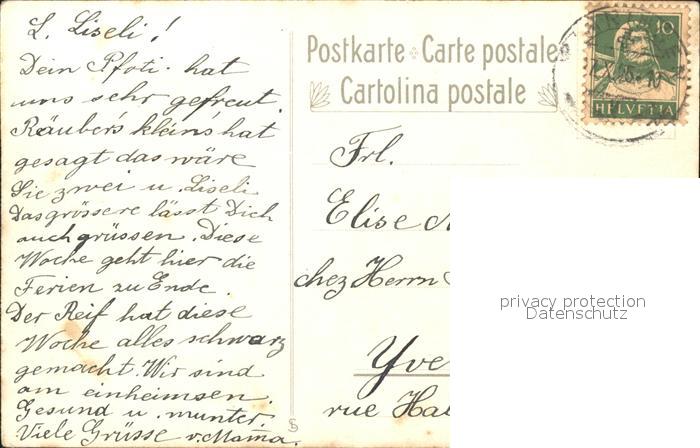 L. Liseli!
Dein Pfoti hat
uns sehr gefreut.
Räuber's klein's hat
gesagt das wäre
Sie zwei u. Liseli
Das grössere lässt Dich
auch grüssen. Diese
Woche geht hier die
Ferien zu Ende.
Der Reif hat diese
Woche alles schwarz
gemacht. Wir sind
am einheimsen.
Gesund u. munter.
Viele Grüsse v. Mama.
Postkarte Carte postale
Cartolina postale
10
HELVETIA
Frl.
Elise
chez Herrn
Yve
rue Hal
privacy protection
Datenschutz